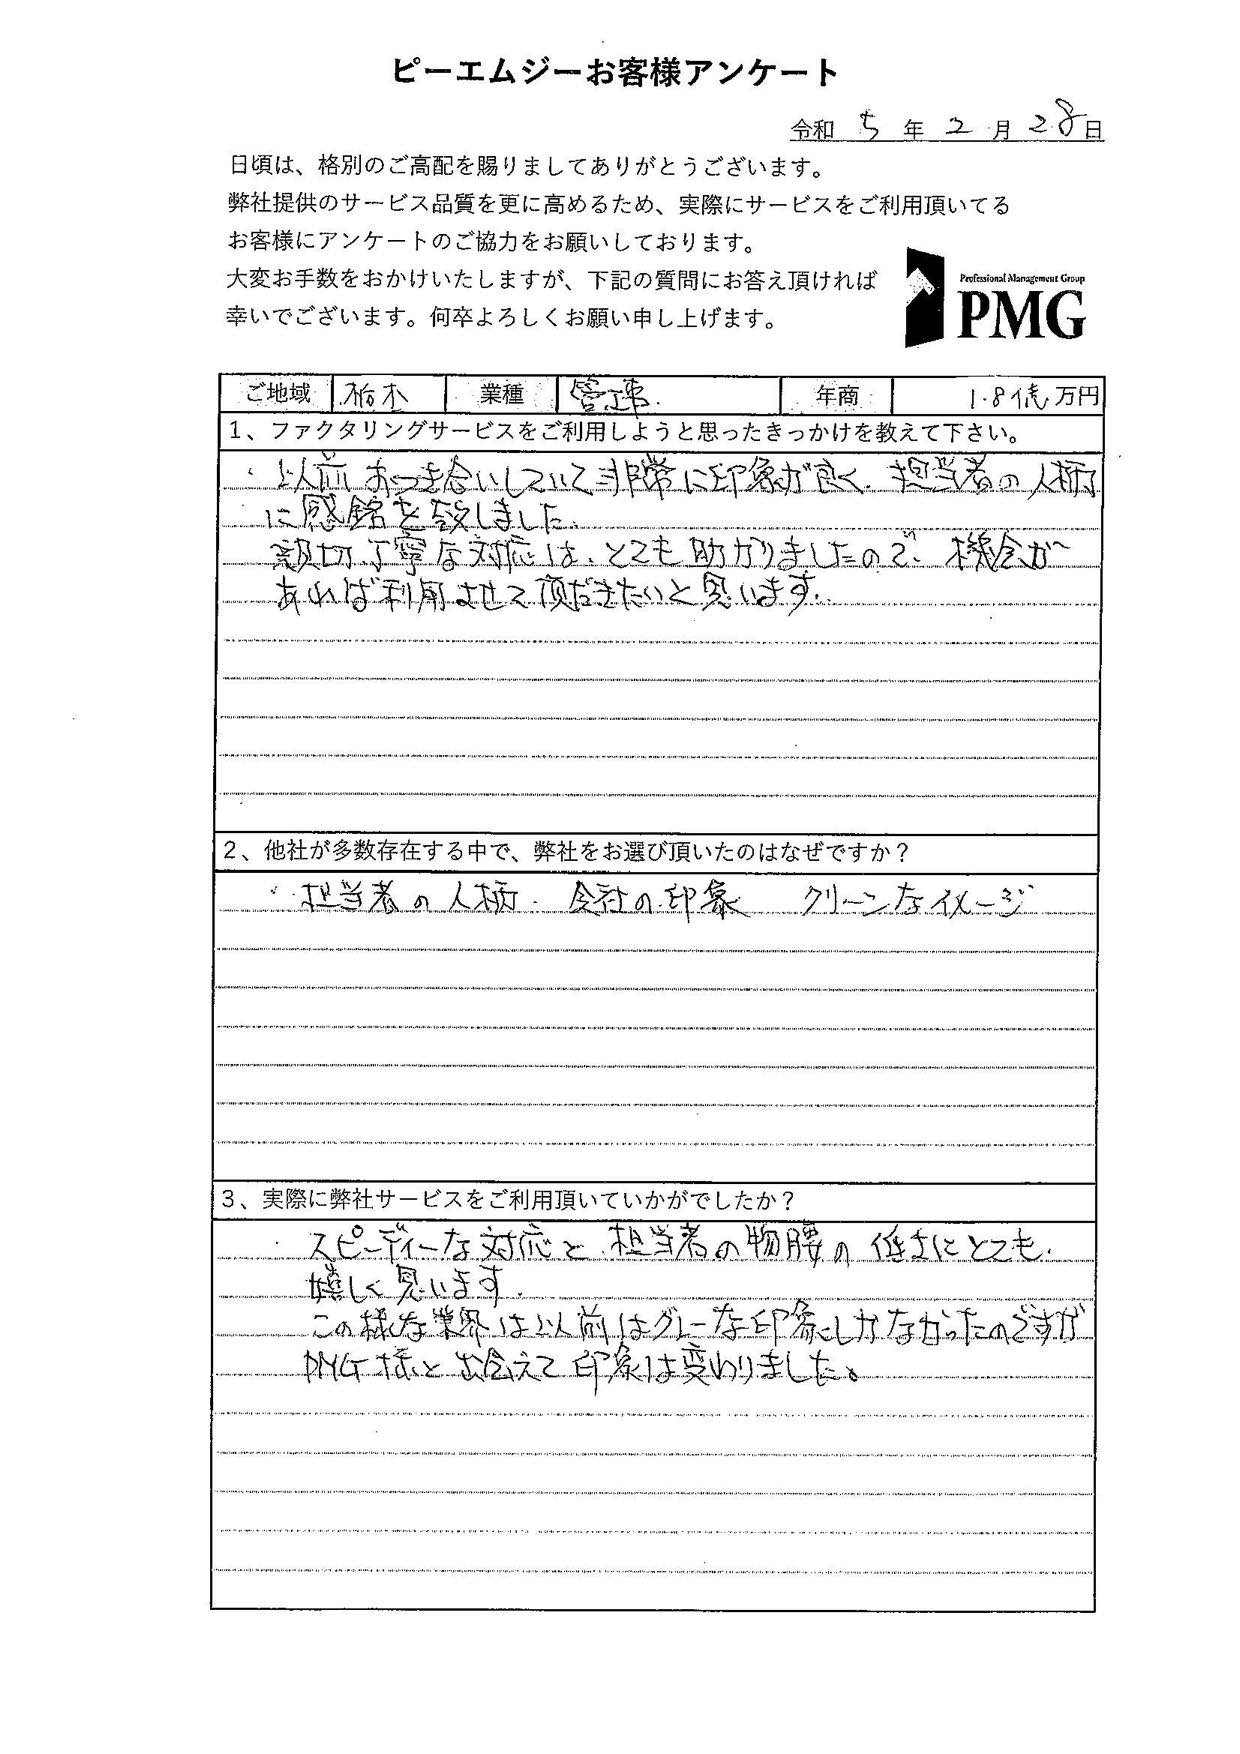 ピーエムジーお客様アンケート
令和 5 年 2 月 28 日
日頃は、格別のご高配を賜りましてありがとうございます。
弊社提供のサービス品質を更に高めるため、実際にサービスをご利用頂いてる
お客様にアンケートのご協力をお願いしております。
大変お手数をおかけいたしますが、下記の質問にお答え頂ければ
幸いでございます。何卒よろしくお願い申し上げます。
Professional Management Group
PMG
ご地域 栃木 業種 管工事 年商 1.8億 万円
1、ファクタリングサービスをご利用しようと思ったきっかけを教えて下さい。
・以前おつき合いしていて非常に印象が良く、担当者の人柄
に感銘を致しました。
親切、丁寧な対応は、とても助かりましたので、機会が
あれば利用させて頂だきたいと思います。
2、他社が多数存在する中で、弊社をお選び頂いたのはなぜですか？
・担当者の人柄. 会社の印象 クリーンなイメージ
3、実際に弊社サービスをご利用頂いていかがでしたか？
・スピーディーな対応と担当者の物腰の低さにとても
嬉しく思います.
この様な業界は以前はグレーな印象しかなかったのですが
PMG様と出会えて印象は変わりました。